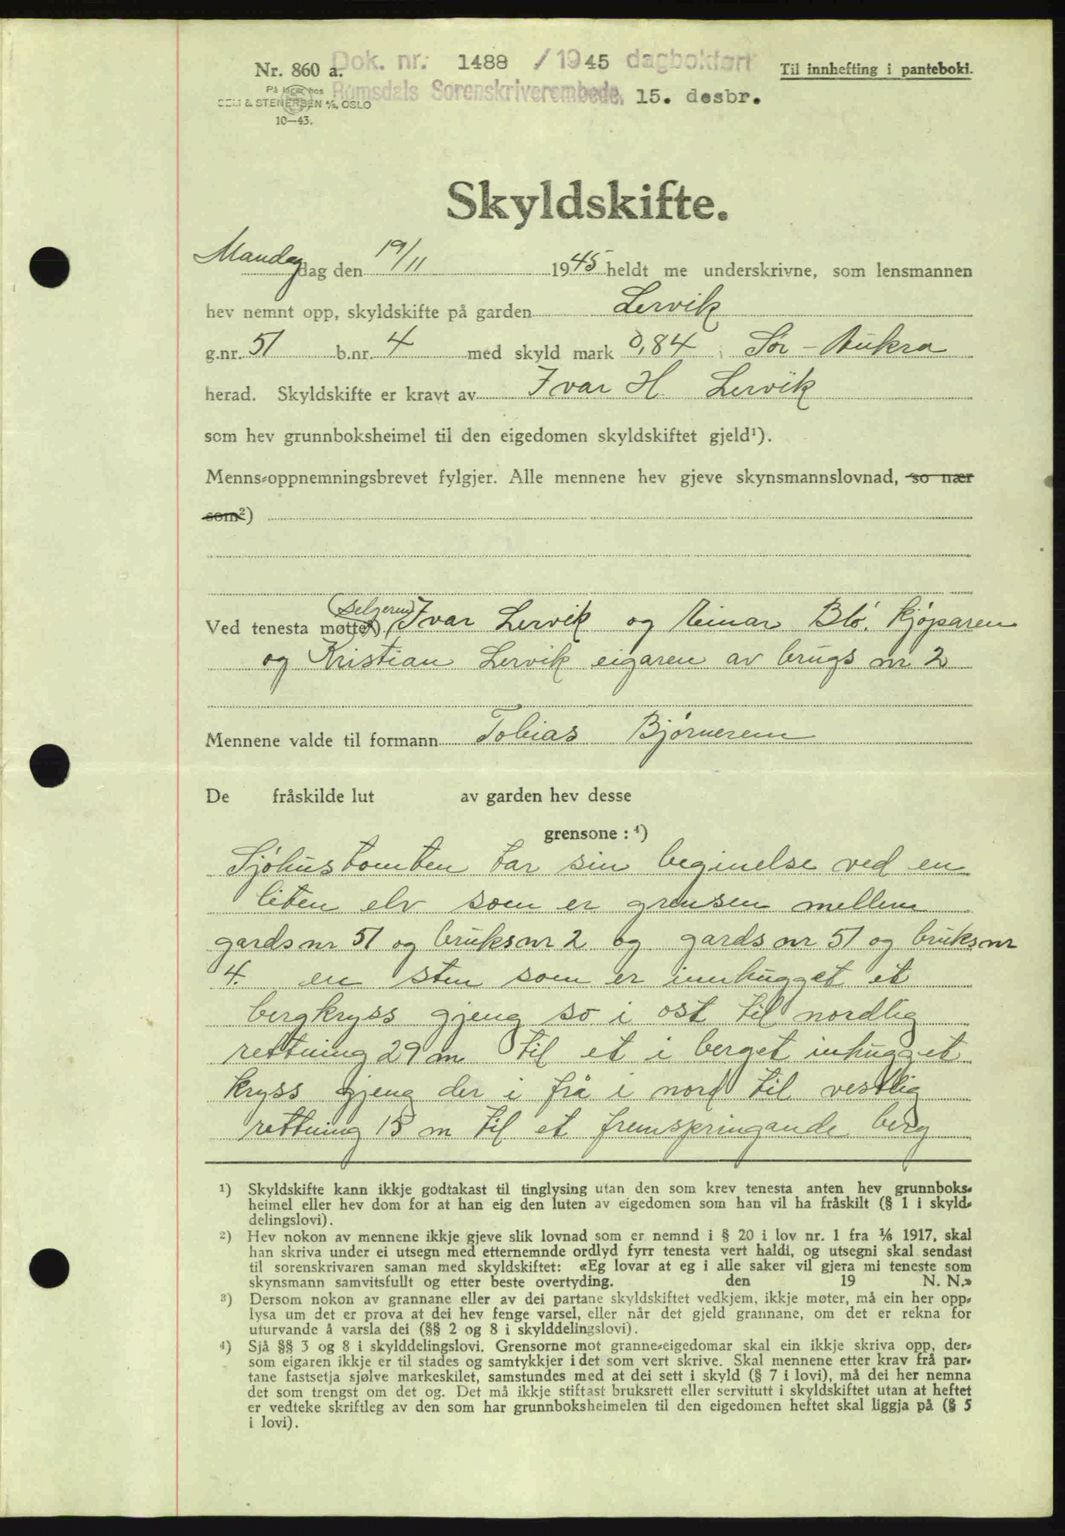 Dok. nr. 1488 / 1945 dagbokført
Nr. 860 a.
Til innhefting i panteboki.
Romsdals Sorenskriverembede, 15. desbr.
På lager hos
SEM & STENERSEN A/S, OSLO
10—43.
Skyldskifte.
Mandag dag den 19/11 1945 heldt me underskrivne, som lensmannen
hev nemnt opp, skyldskifte på garden Lervik
g.nr. 51 b.nr. 4 med skyld mark 0,84 i Sør-Aukra
herad. Skyldskifte er kravt av Ivar H. Lervik
som hev grunnboksheimel til den eigedomen skyldskiftet gjeld¹).
Menns-oppnemningsbrevet fylgjer. Alle mennene hev gjeve skynsmannslovnad, so nær
som²)
(Selgeren)
Ved tenesta møtte³) Ivar Lervik og Einar Blø. Kjøparen
og Kristian Lervik eigaren av brugs nr 2
Mennene valde til formann Tobias Bjørnerem
De fråskilde lut av garden hev desse
grensone : ⁴)
Sjøhustomten tar sin beginelse ved en
liten elv som er grensen mellem
gards nr 51 og bruks nr 2 og gards nr 51 og bruks nr
4. en sten som er innhugget et
bergkryss gjeng so i ost til nordlig
rettning 29 m til et i berget inhugget
kryss gjeng der i frå i nord til vestlig
rettning 15 m til et fremspringande berg
¹) Skyldskifte kann ikkje godtakast til tinglysing utan den som krev tenesta anten hev grunnboks-
heimel eller hev dom for at han eig den luten av eigedomen som han vil ha fråskilt (§ 1 i skyld-
delingslovi).
²) Hev nokon av mennene ikkje gjeve slik lovnad som er nemnd i § 20 i lov nr. 1 fra 1/6 1917, skal
han skriva under ei utsegn med etternemnde ordlyd fyrr tenesta vert haldi, og utsegni skal sendast
til sorenskrivaren saman med skyldskiftet: «Eg lovar at eg i alle saker vil gjera mi teneste som
skynsmann samvitsfullt og etter beste overtyding. den 19 N. N.»
³) Dersom nokon av grannane eller av dei partane skyldskiftet vedkjem, ikkje møter, må ein her opp-
lysa um det er prova at dei hev fenge varsel, eller når det gjeld grannane, om det er rekna for
uturvande å varsla dei (§§ 2 og 8 i skylddelingslovi).
⁴) Sjå §§ 3 og 8 i skylddelingslovi. Grensorne mot granne-eigedomar skal ein ikkje skriva opp, der-
som eigaren ikkje er til stades og samtykkjer i det som vert skrive. Skal mennene etter krav frå par-
tane fastsetja sjølve markeskilet, samstundes med at dei sett i skyld (§ 7 i lovi), må dei her nemna
det som trengst om det og. Det må ikkje stiftast bruksrett eller servitutt i skyldskiftet utan at heftet
er vedteke skriftleg av den som har grunnboksheimelen til den eigedomen heftet skal liggja på (§ 5
i lovi).